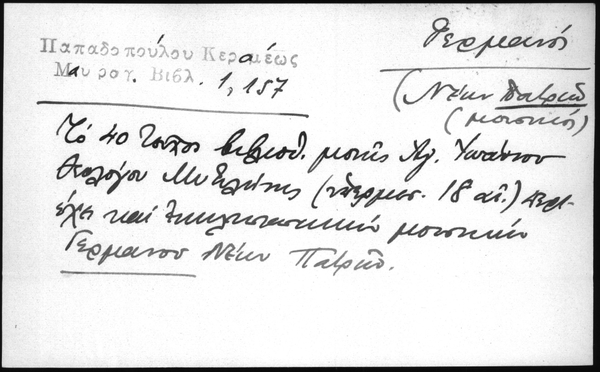 Παπαδοπούλου Κεραμέως
Μαυρογ. Βιβλ. 1, 157
Γερμανός
(Νέων Πατρῶν
(μουσικός)
Τό 40 τεῦχος βιβλιοθ. μονῆς Ἁγ. Ἰωάννου
Θεολόγου Μυτιλήνης (περγαμ. 18 αἰ.) περι-
έχει καί ἐκκλησιαστικήν μουσικήν
Γερμανοῦ Νέων Πατρῶν.